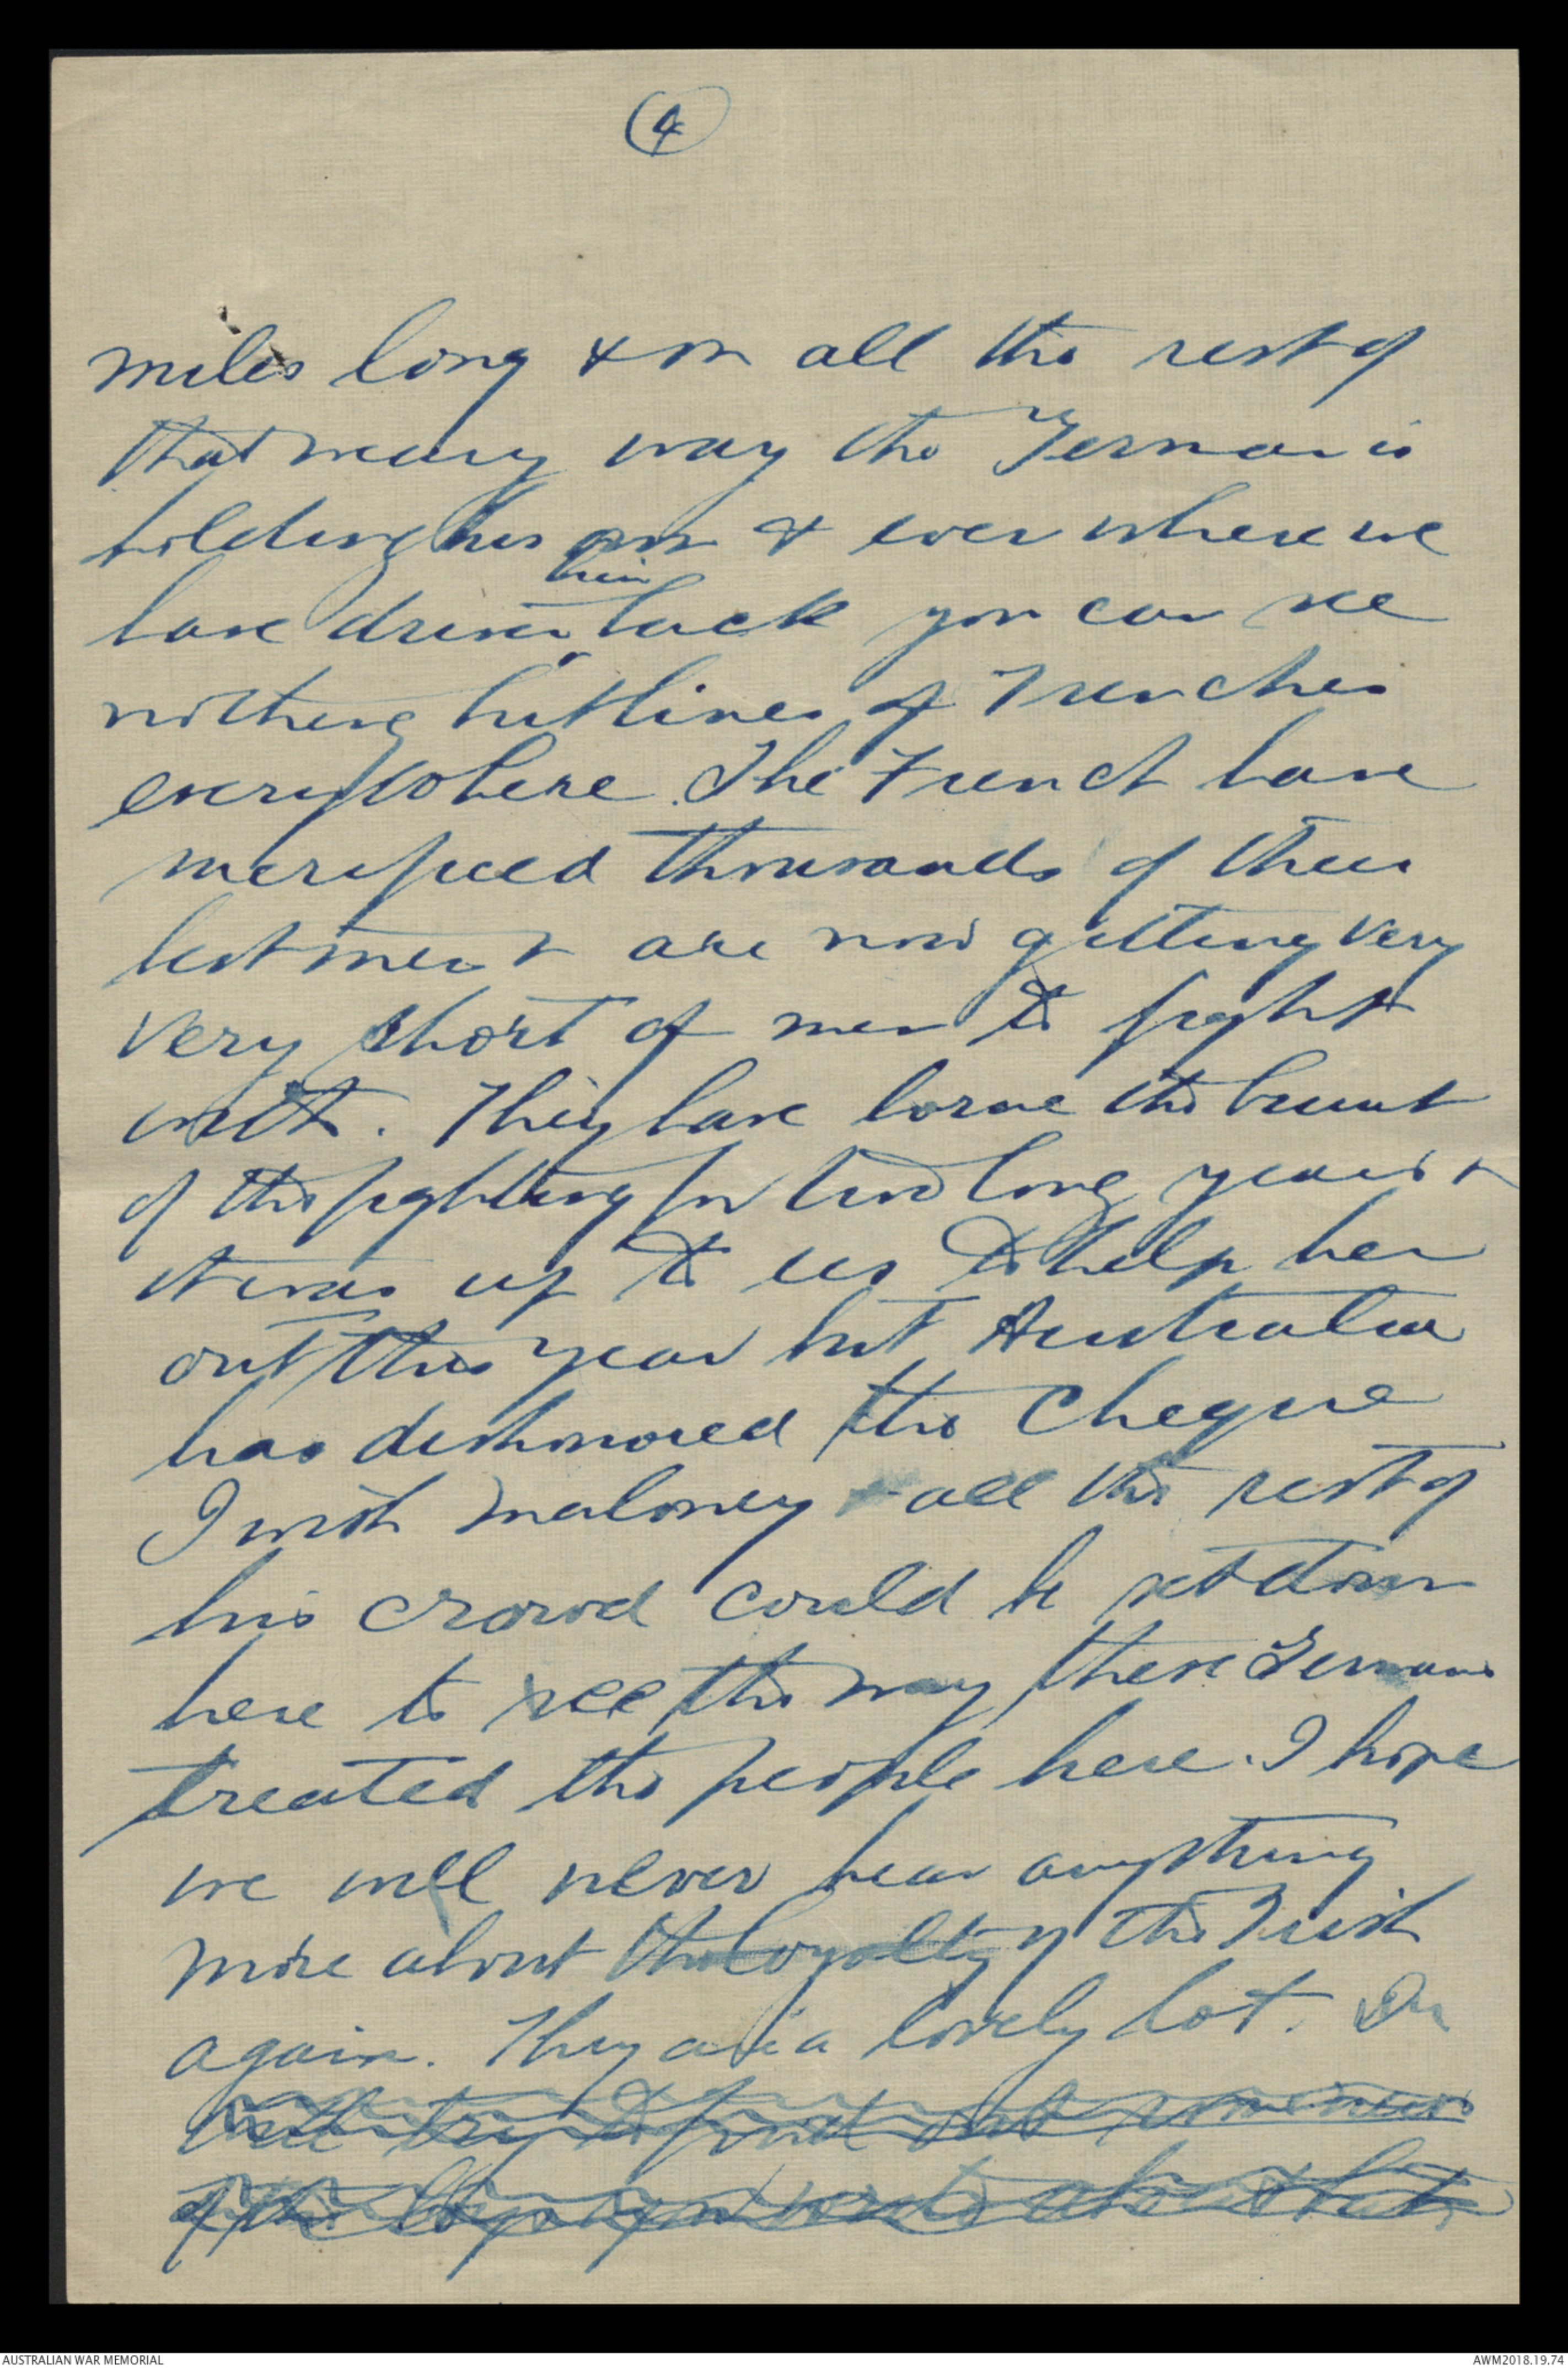 (4)
miles long & on all the rest of
that weary way the German is
holding his own & even where we
him
have driven back you can see
nothing but lines of Trenches
everywhere. The French have
sacrificed thousands of their
best men & are now getting very
very short of men to fight
with. They have borne the brunt
of the fighting for two long years &
it was up to us to help her
out this year but Australia
has dishonored the Cheque
I wish Maloney & all the rest of
his crowd could be set down
here to see the way these Germans
treated the people here. I hope
we will never hear anything
more about the loyalty of the Irish
again. They are a lovely lot.
will try & find out some news
of the boys you wrote about but
AUSTRALIAN WAR MEMORIAL
AWM2018.19.74